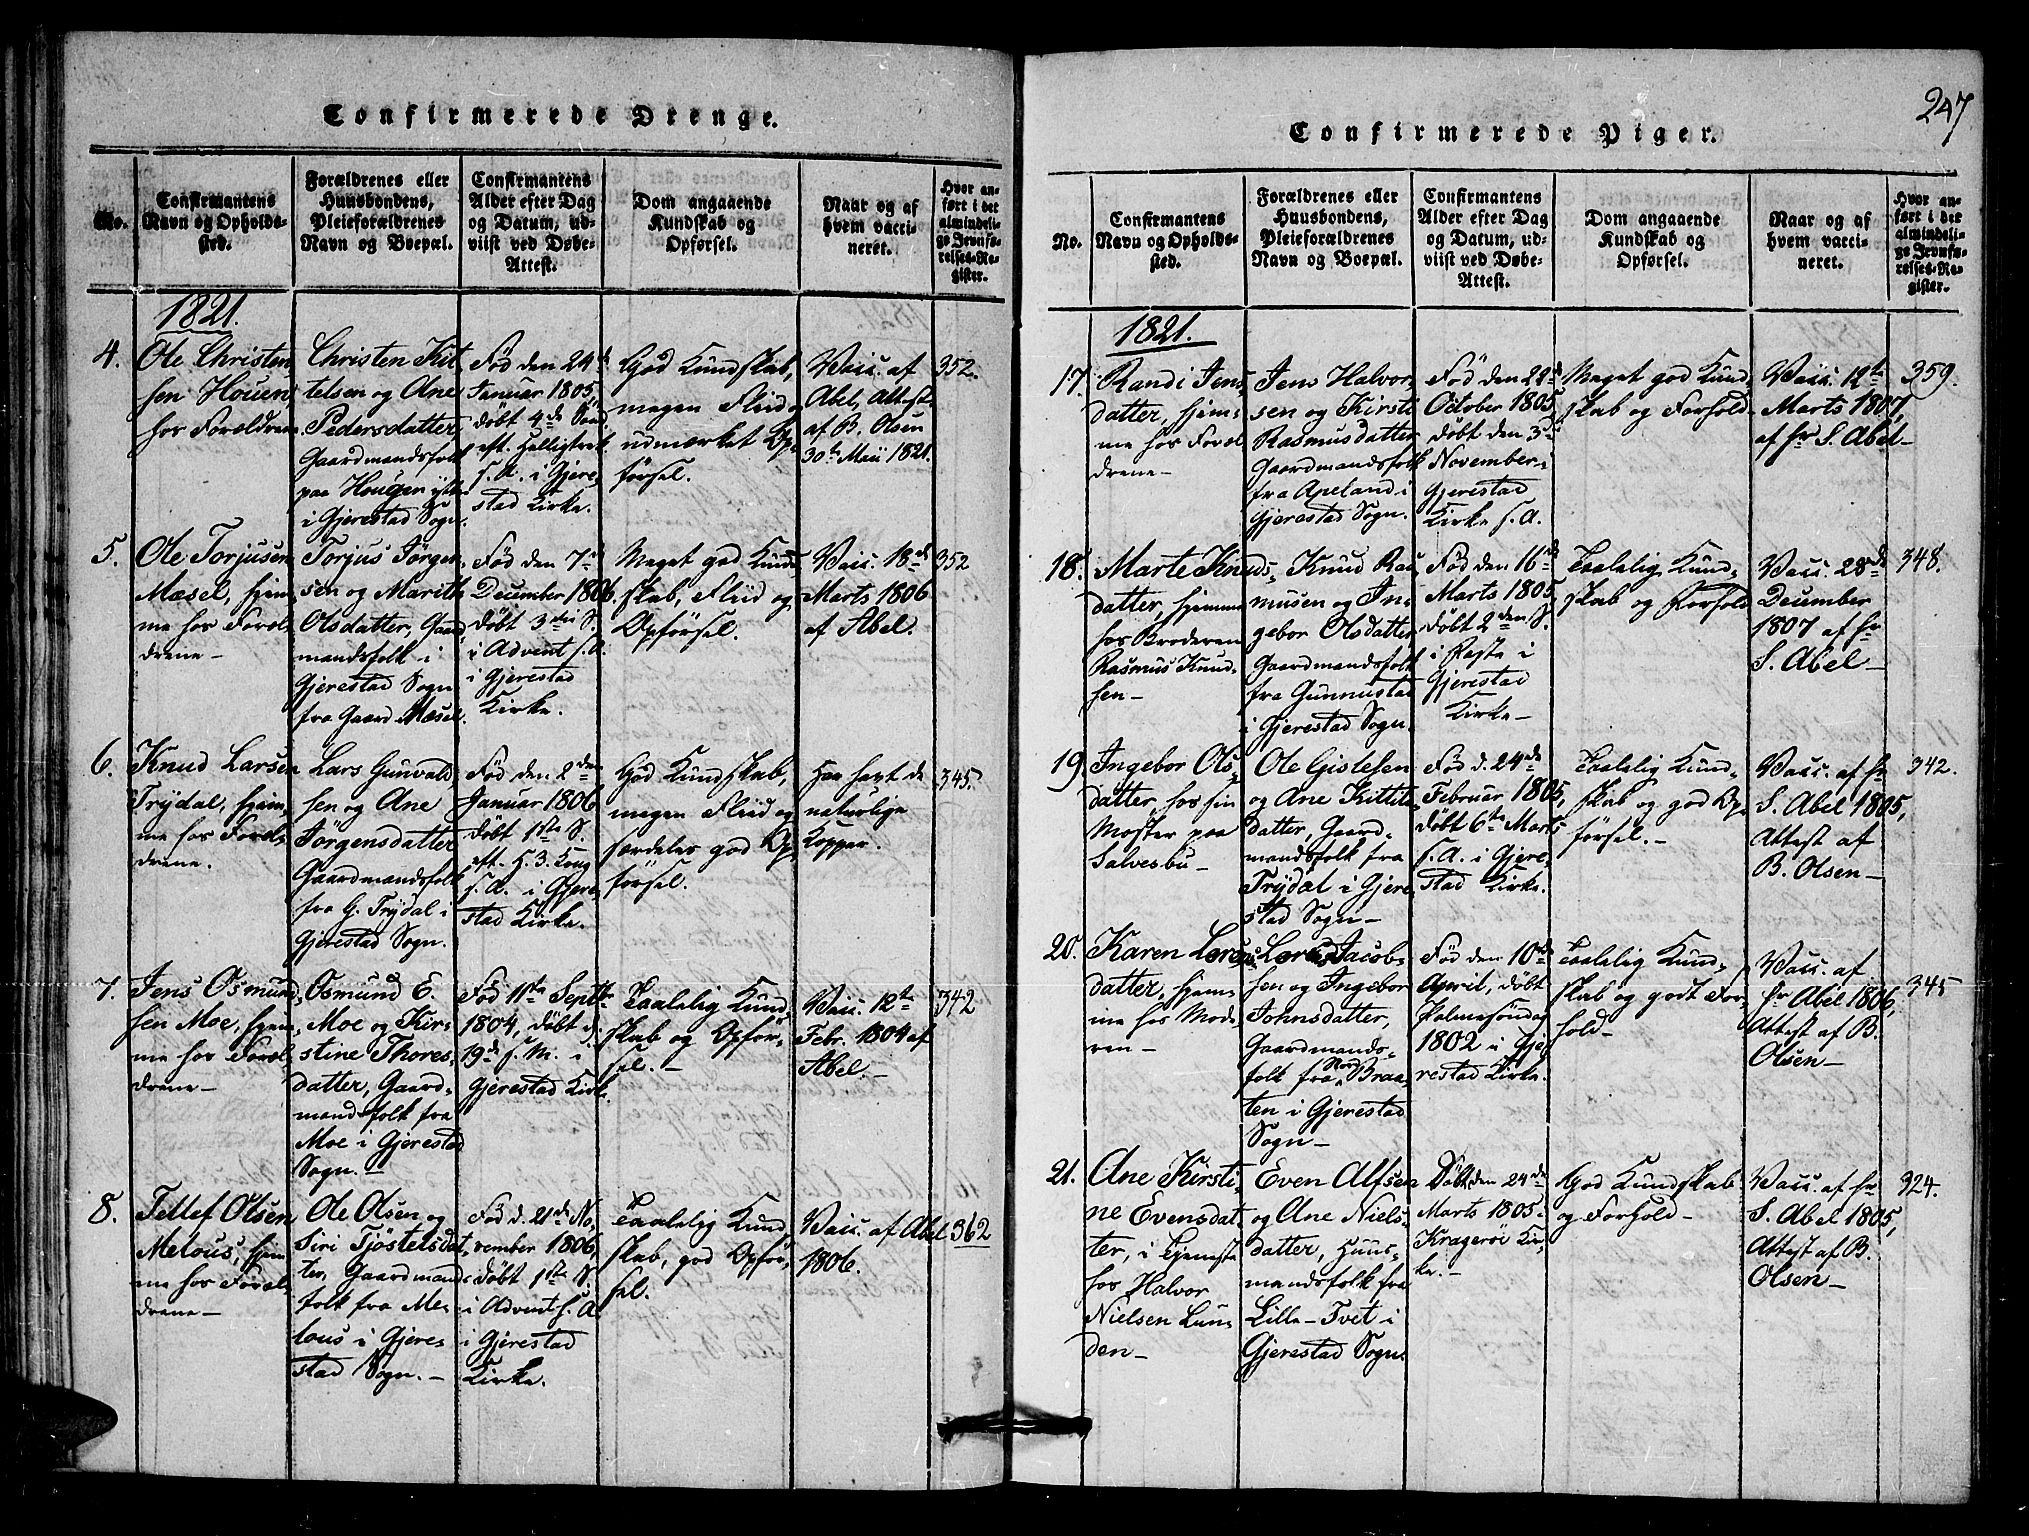 Confirmerede Drenge.
No.
Confirmantens
Navn og Opholds-
sted.
Forældrenes eller
Huusbondens,
Pleieforældrenes
Navn og Boepæl.
Confirmantens
Alder efter Dag
og Datum, ud-
viist ved Døbe-
Attest.
Dom angaaende
Kundskab og
Opførsel.
Naar og af
hvem vacci-
neret.
Hvor an-
ført i det
almindeli-
ge Jevnfø-
relses-Re-
gister.
1821.
4.
Ole Christen
sen Houen
hos Forældrene
Christen Kit
telsen og Ane
Pedersdatter,
Gaardmandsfolk
paa Hougen
i Gjerestad Sogn.
Fød den 24de
Januar 1805,
døbt 4de Sønd.
eft. Helligtrek.
s. A. i Gjere,
stad Kirke.
God Kundskab,
megen Fliid og
udmærket Op,
førsel.
Vacc. af
Abel, Attest
af B. Olsen
30te Maii 1821.
352.
5.
Ole Torjusen
Mæsel, hjem,
me hos Foræl,
drene –
Torjus Jörgen,
sen og Marith
Olsdatter, Gaard
mandsfolk i
Gjerestad Sogn
fra Gaard Mæsel.
Fød den 7de
December 1806.
døbt 3die S.
i Advent s. A.
i Gjerestad
Kirke.
Meget god Kund
skab, Fliid og
Opførsel.
Vacc. 18de
Marts 1806
af Abel.
352
6.
Knud Larsen
Trydal, hjem,
me hos Foræl,
drene.
Lars Gunvald
sen og Ane
Jörgensdatter
Gaardmandsfolk
fra G. Trydal i
Gjerestad Sogn.
Fød den 2den
Januar 1806
døbt 1ste S.
eft. H. 3. Kong.
s. A. i Gjere,
stad Kirke.
God Kundskab,
megen Fliid og
særdeles god Op,
førsel.
Har havt de
naturlige
Kopper.
345.
7.
Jens Osmund,
sen Moe, hjem,
me hos Foræl,
drene –
Osmund E.
Moe og Kir,
stine Thores,
datter, Gaard,
mandsfolk fra
Moe i Gjerestad
Sogn. –
Fød 11te Septbr.
1804, døbt d.
19de s. M. i
Gjerestad Kirke.
Taalelig Kund,
skab og Opfør,
sel. –
Vacc. 12te
Febr. 1804 af
Abel. –
342
8.
Tellef Olsen
Melous, hjem
me hos Foræl,
drene –
Ole Olsen og
Siri Tjöstelsdat,
ter, Gaardmand
folk fra Me,
lous i Gjere,
stad Sogn. –
Fød d. 21de No,
vember 1806,
døbt 1ste S.
i Advent s. A
i Gjerestad
Kirke.
Taalelig Kund
skab, god Opfør,
sel.
Vacc. af Abel
1806.
362
247
Confirmerede Piger.
No.
Confirmantens
Navn og Opholds-
sted.
Forældrenes eller
Huusbondens,
Pleieforældrenes
Navn og Boepæl.
Confirmantens
Alder efter Dag
og Datum, ud-
viist ved Døbe-
Attest.
Dom angaaende
Kundskab og
Opførsel.
Naar og af
hvem vacci-
neret.
Hvor an-
ført i det
almindeli-
ge Jevnfø-
relses-Re-
gister.
1821.
17.
Randi Jens,
datter, hjem,
me hos Foræl
drene –
Jens Halvor,
sen og Kirsti
Rasmusdatter
Gaardmandsfolk
fra Apeland i
Gjerestad Sogn.
Fød den 22de
October 1805,
døbt den 3de
November i
Gjerestad
Kirke s. A.
Meget god Kund
skab og Forhold
Vacc. 12te
Marts 1807,
af Hr S. Abel –
359.
18.
Marte Knuds,
datter, hjemme
hos Broderen
Rasmus Knud,
sen –
Knud Ras
musen og In,
gebor Olsdatter
Gaardmandsfolk
fra Gunnustad
i Gjerestad Sogn.
Fød den 16de
Marts 1805,
døbt 2den S.
i Faste i
Gjerestad
Kirke –
Taalelig Kund,
skab og Forhold
Vacc. 28de
December
1807 af Hr
S. Abel –
348.
19.
Ingebor Ols,
datter, hos sin
Moster paa
Salvesbu –
Ole Gislesen
og Ane Kittils
datter, Gaard,
mandsfolk fra
Trydal i Gjere
stad Sogn –
Fød d. 24de
Februar 1805,
døbt 6te Marts
s. A. i Gjere,
stad Kirke.
Taalelig Kund,
skab og god Op,
førsel. –
Vacc. af Hr
S. Abel 1805,
Attest af
B. Olsen –
342.
20.
Karen
datter, hjem,
me hos Mode
ren –
Jacob,
sen og Ingebor
Johnsdatter,
Gaardmands,
folk fra Nord Braa,
ten i Gjerestad
Sogn –
Fød den 10de
April, døbt
Palmesöndag
1802 i Gje
restad Kirke.
Taalelig Kund,
skab og godt For,
hold –
Vacc. af
Hr Abel 1806,
Attest af B.
Olsen –
345
21.
Ane Kirsti,
ne Evensdat,
ter, i Tjeneste
hos Halvor
Nielsen Lun,
den –
Even Alfsen
og Ane Niels,
datter, Huus,
mandsfolk fra
Lille – Tvet i
Gjerestad Sogn.
Døbt den 24de
Marts 1805 i
Krageröe Kir,
ke. –
God Kundskab
og Forhold –
Vacc. af Hr
S. Abel 1805,
Attest af B.
Olsen –
324.